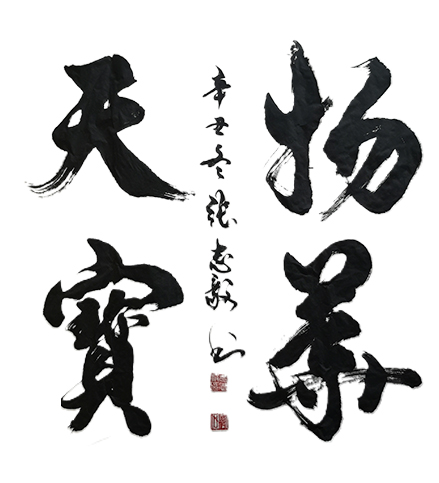 物華
天寶
辛丑冬張志毅书